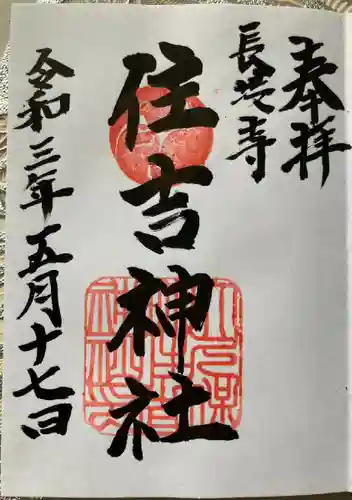 奉拝
長芝寺
住吉神社
令和三年五月十七日